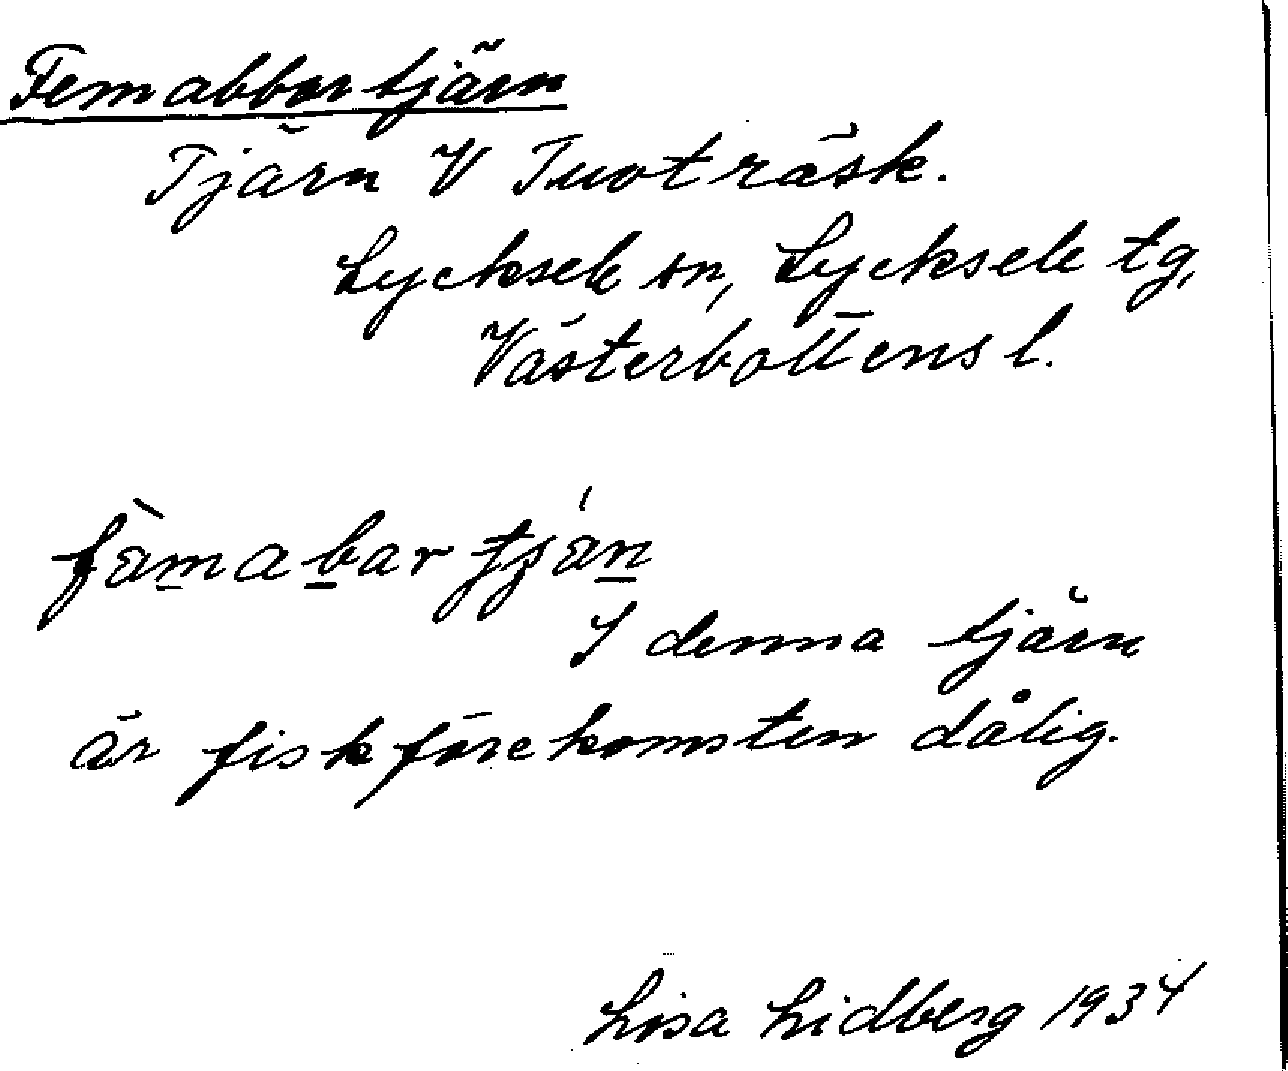 Femabbortjärn
Tjärn V Tuoträsk.
Lycksele sn, Lycksele tg,
Västerbottens l.
fämabar tjän
I denna tjärn
är fiskförekomsten dålig.
Lisa Lidberg 1934